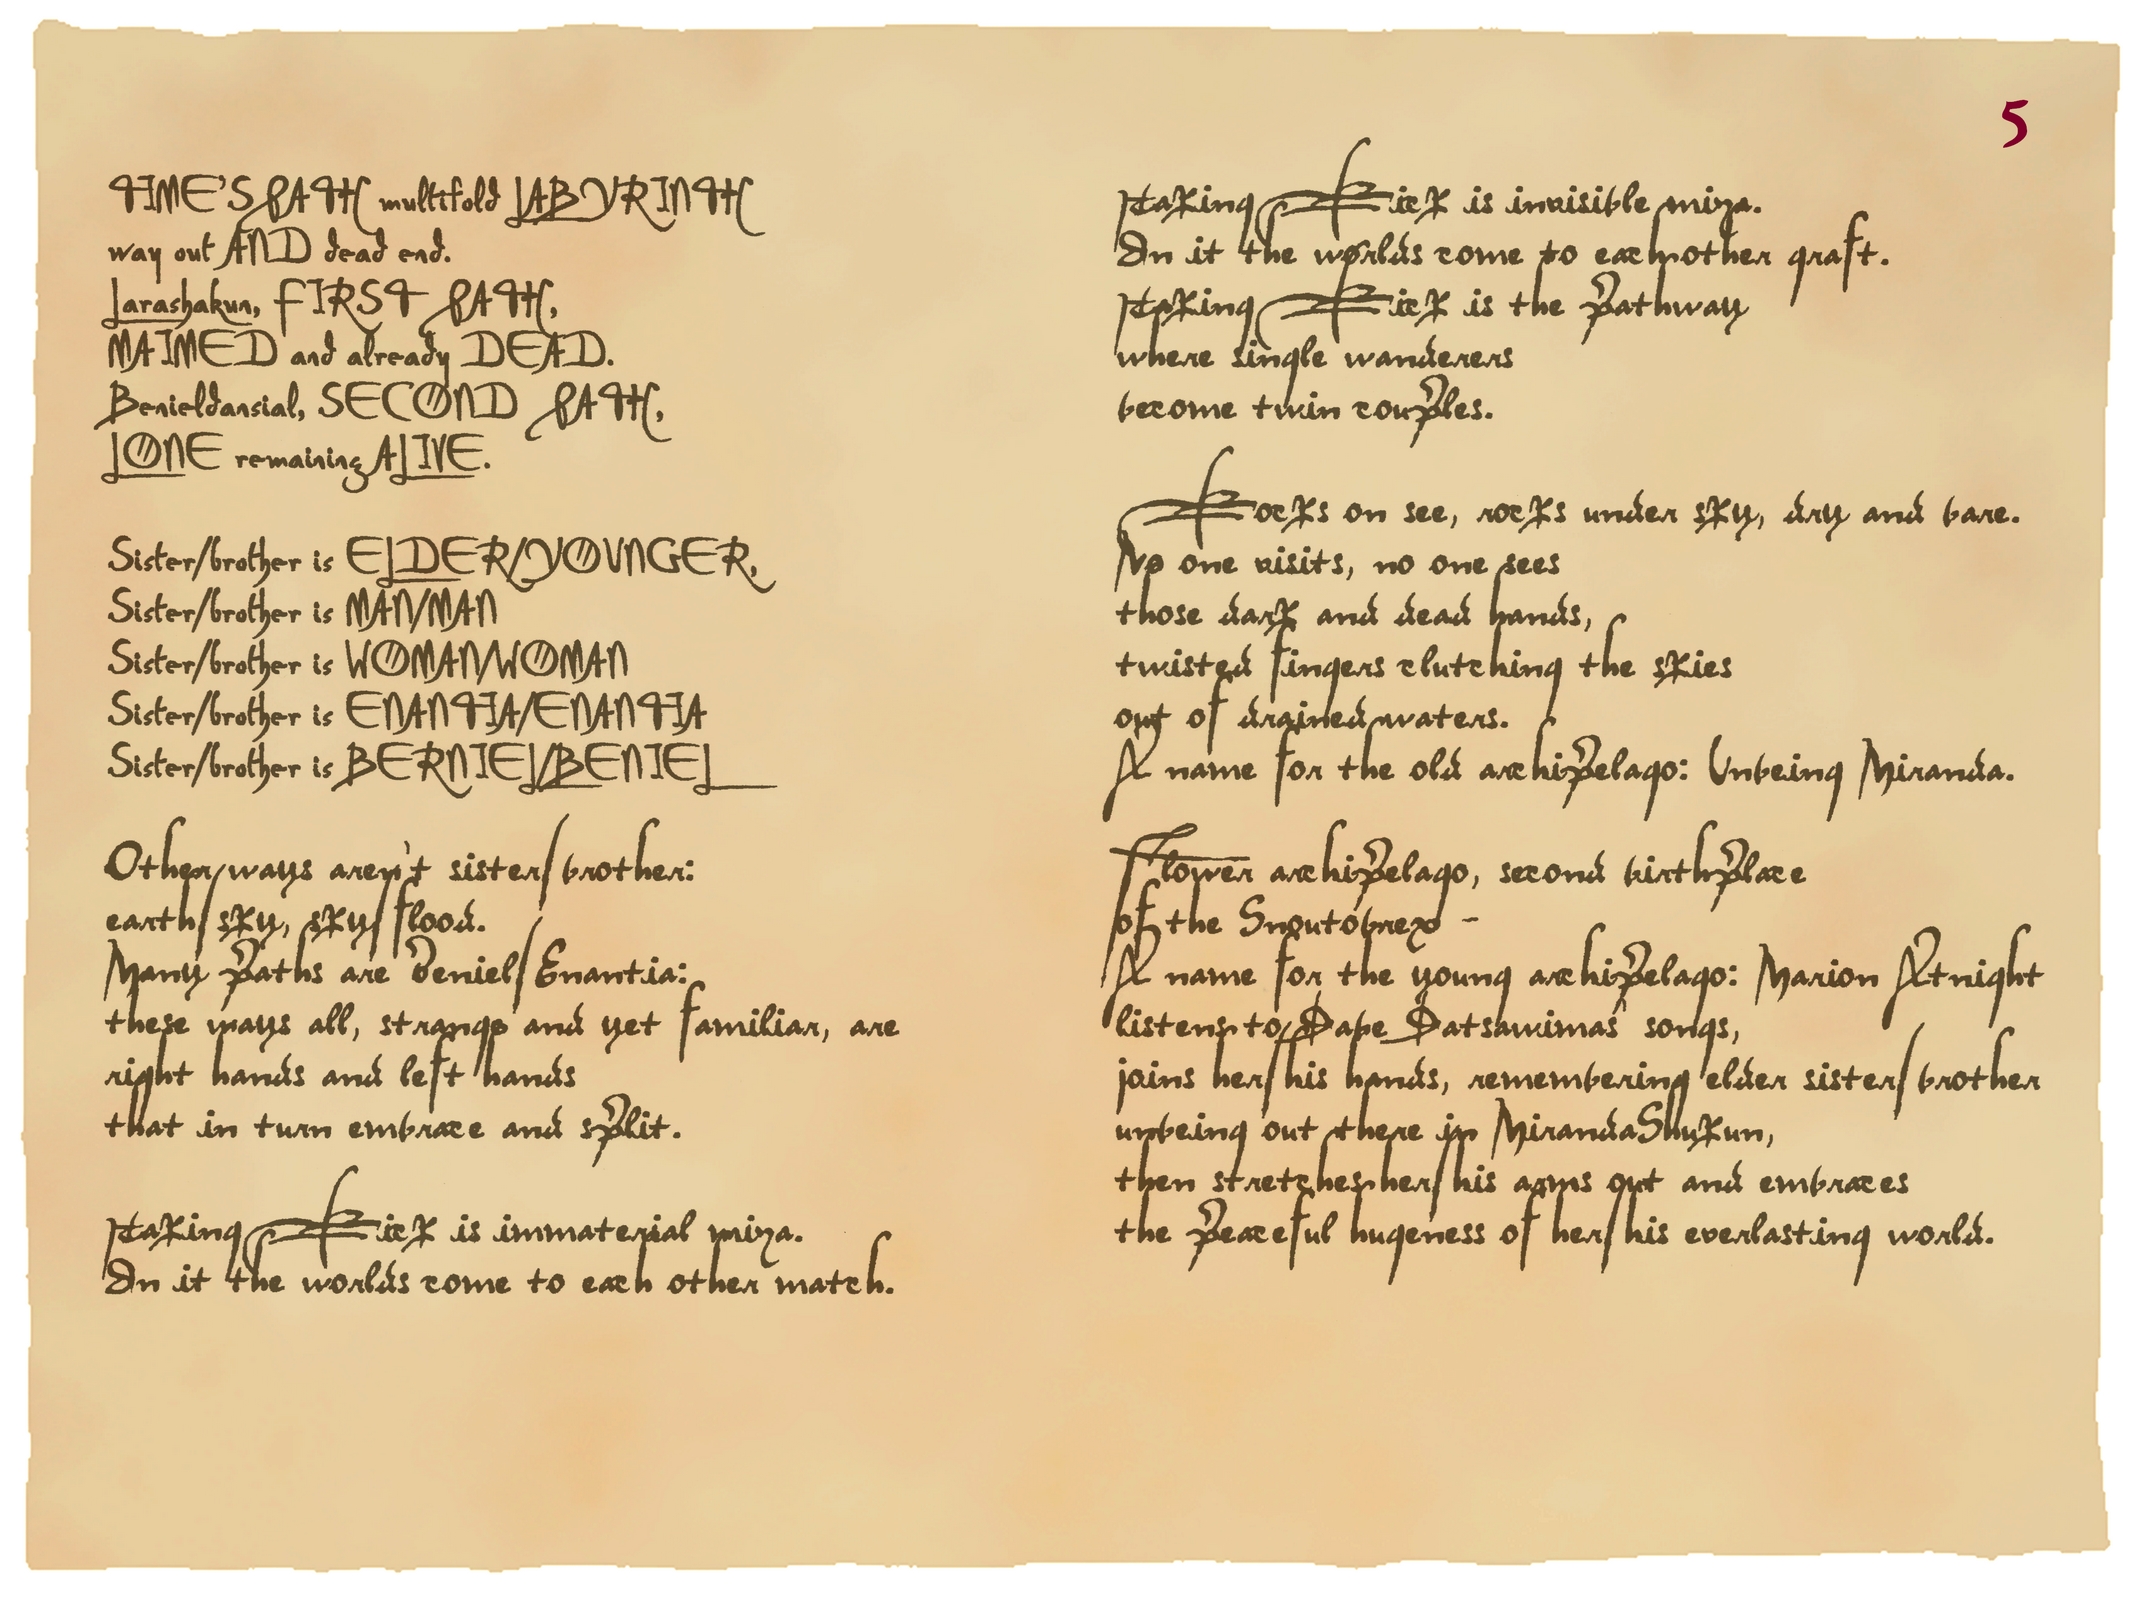 TIME'S PATH multifold LABYRINTH
way out AND dead end.
Larashakun, FIRST PATH,
MAIMED and already DEAD.
Benieldansial, SECOND PATH,
LONE remaining ALIVE.
Sister/brother is ELDER/YOUNGER,
Sister/brother is MAN/MAN
Sister/brother is WOMAN/WOMAN
Sister/brother is ENANTIA/ENANTIA
Sister/brother is BERNIEL/BENIEL
Other ways aren't sister/brother:
earth/sky, sky/flood.
Many paths are Beniel/Enantia:
these ways all, strange and yet familiar, are
right hands and left hands
that in turn embrace and split.
Taking Kick is immaterial miza.
In it the worlds come to each other match.
5
Taking Kick is invisible miza.
In it the worlds come to each other graft.
Taking Kick is the pathway
where single wanderers
become twin couples.
Rocks on see, rocks under sky, dry and bare.
No one visits, no one sees
those dark and dead hands,
twisted fingers clutching the skies
out of drained waters.
A name for the old archipelago: Unbeing Miranda.
Flower archipelago, second birthplace
of the Snoutobrex -
A name for the young archipelago: Marion Atnight
listens to Dabe Datsawimas' songs,
joins her/his hands, remembering elder sister/brother
unbeing out there in MirandaShukun,
then stretches her/his arms out and embraces
the peaceful hugeness of her/his everlasting world.